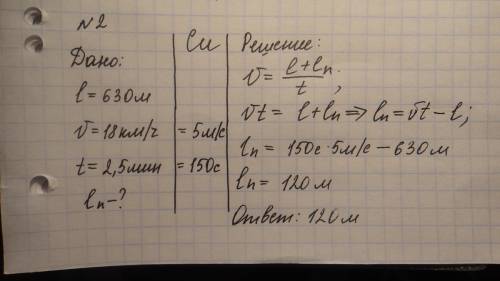 №2
Дано:
l = 630м
v = 18км/ч
t = 2,5мин
lп - ?
Си
= 5м/с
= 150с
Решение:
v = (l + lп)/t;
vt = l + lп ⇒ lп = vt - l;
lп = 150с · 5м/с - 630м
lп = 120м
Ответ: 120м